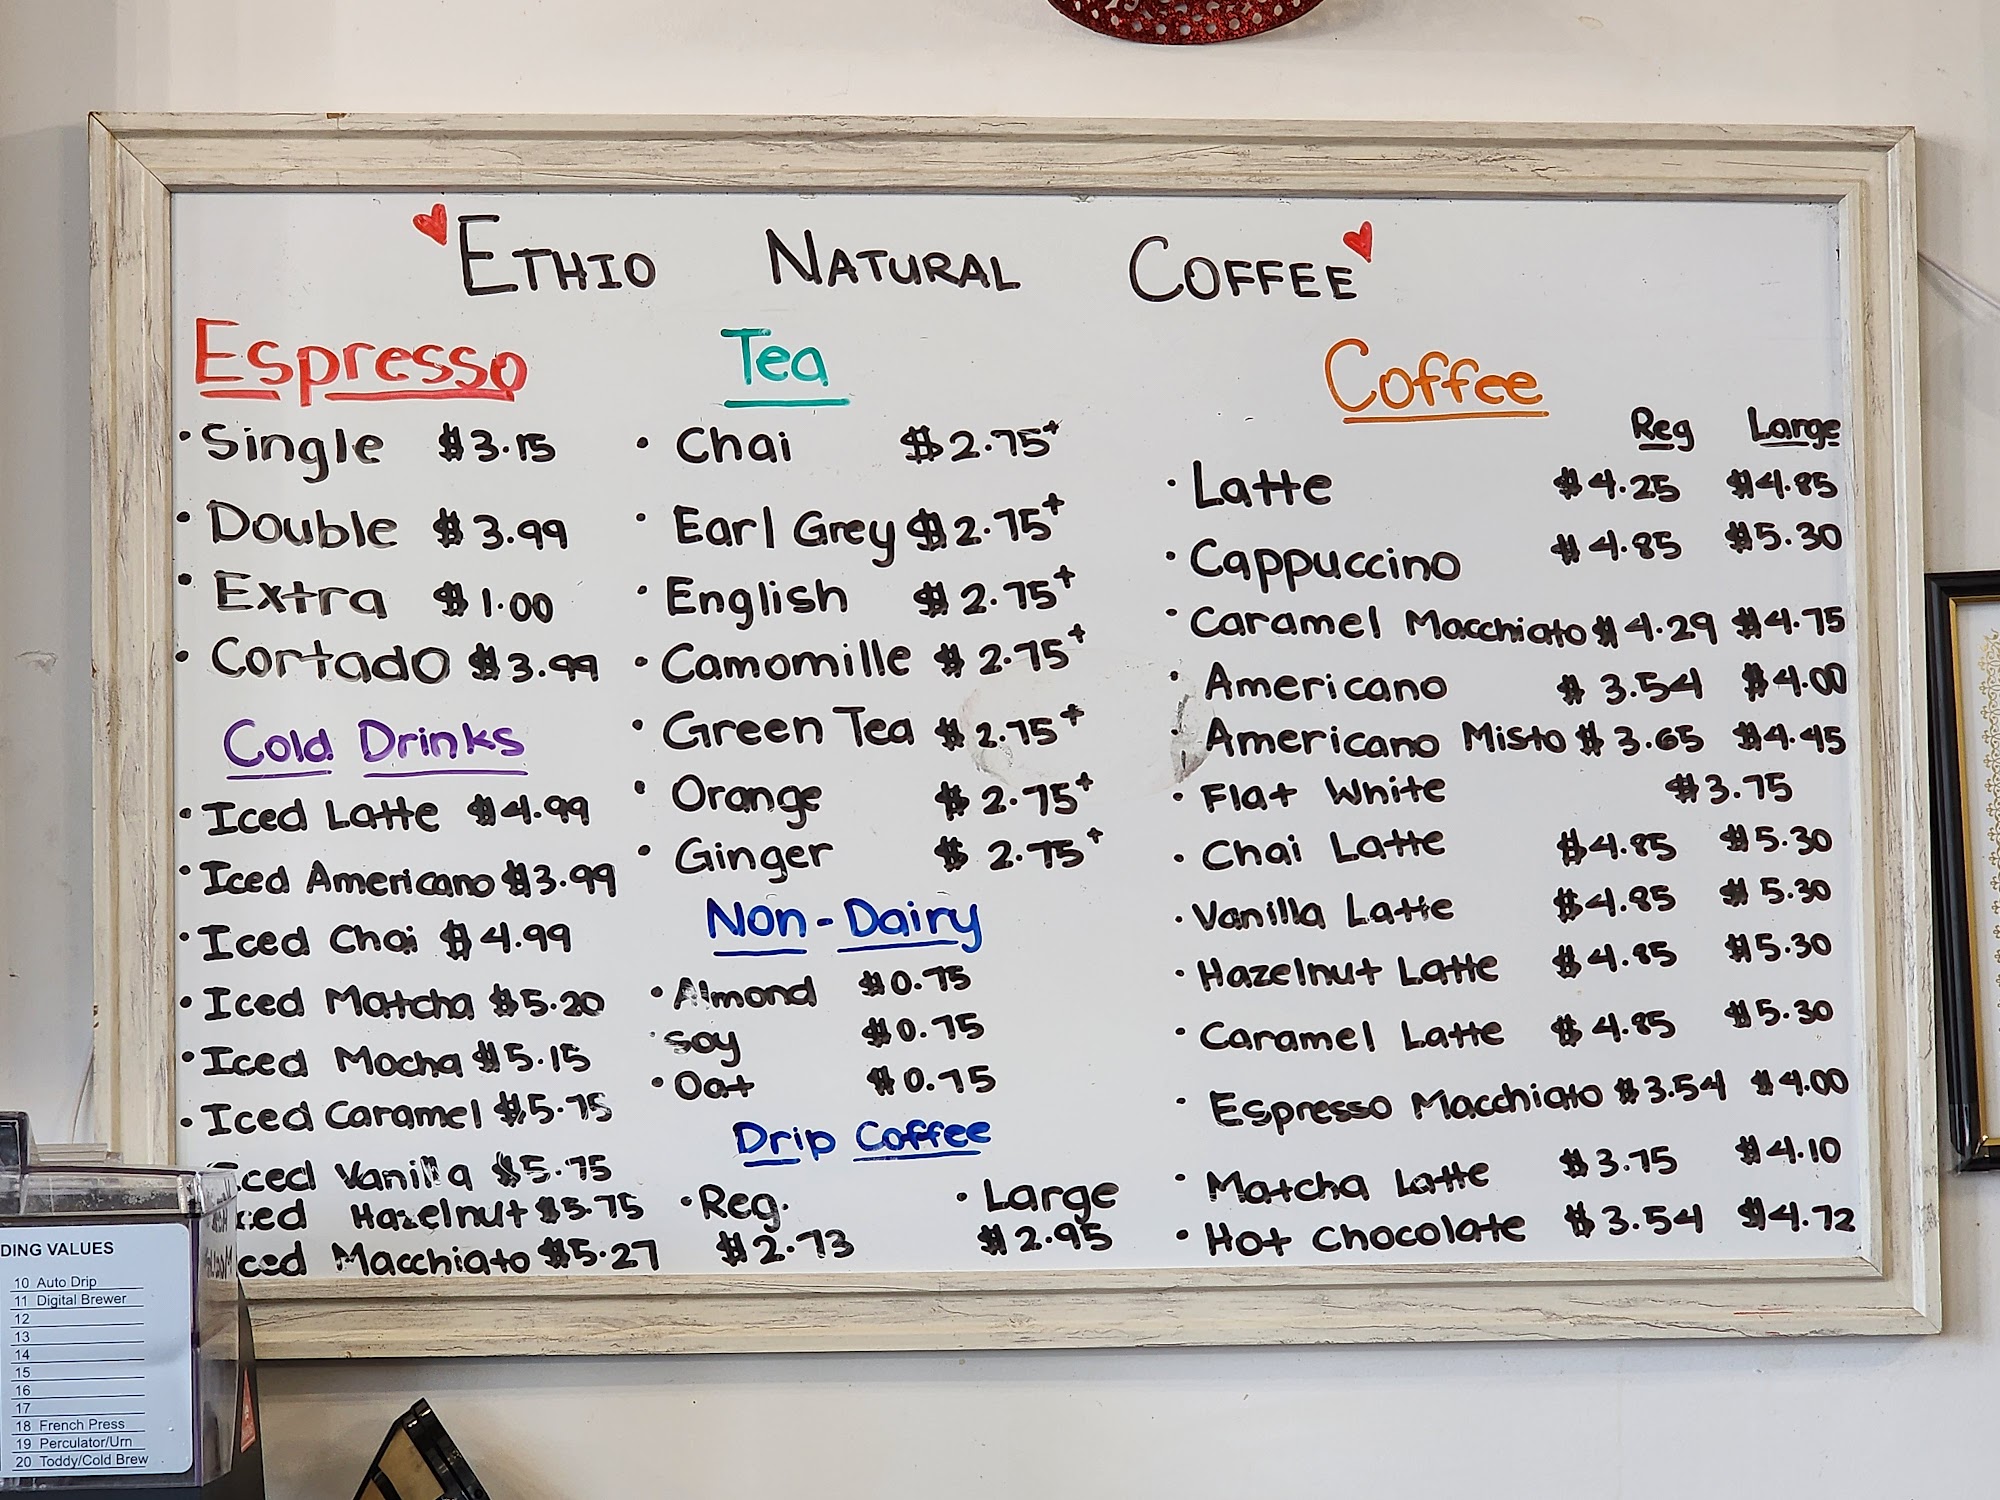 ETHIO NATURAL COFFEE
Espresso
• Single $3.15
• Double $3.99
• Extra $1.00
• Cortado $3.99
Cold Drinks
• Iced Latte $4.99
• Iced Americano $3.99
• Iced Chai $4.99
• Iced Matcha $5.20
• Iced Mocha $5.15
• Iced Caramel $5.75
Iced Vanilla $5.75
Iced Hazelnut $5.75
Iced Macchiato $5.27
Tea
• Chai $2.75+
• Earl Grey $2.75+
• English $2.75+
• Camomille $2.75+
• Green Tea $2.75+
• Orange $2.75+
• Ginger $2.75+
Non-Dairy
• Almond $0.75
• Soy $0.75
• Oat $0.75
Drip Coffee
• Reg. • Large
$2.73 $2.95
Coffee
Reg Large
• Latte $4.25 $4.85
• Cappuccino $4.85 $5.30
• Caramel Macchiato $4.29 $4.75
• Americano $3.54 $4.00
• Americano Misto $3.65 $4.45
• Flat White $3.75
• Chai Latte $4.85 $5.30
• Vanilla Latte $4.85 $5.30
• Hazelnut Latte $4.85 $5.30
• Caramel Latte $4.85 $5.30
• Espresso Macchiato $3.54 $4.00
• Matcha Latte $3.75 $4.10
• Hot Chocolate $3.54 $4.72
DING VALUES
10 Auto Drip
11 Digital Brewer
12
13
14
15
16
17
18 French Press
19 Perculator/Urn
20 Toddy/Cold Brew